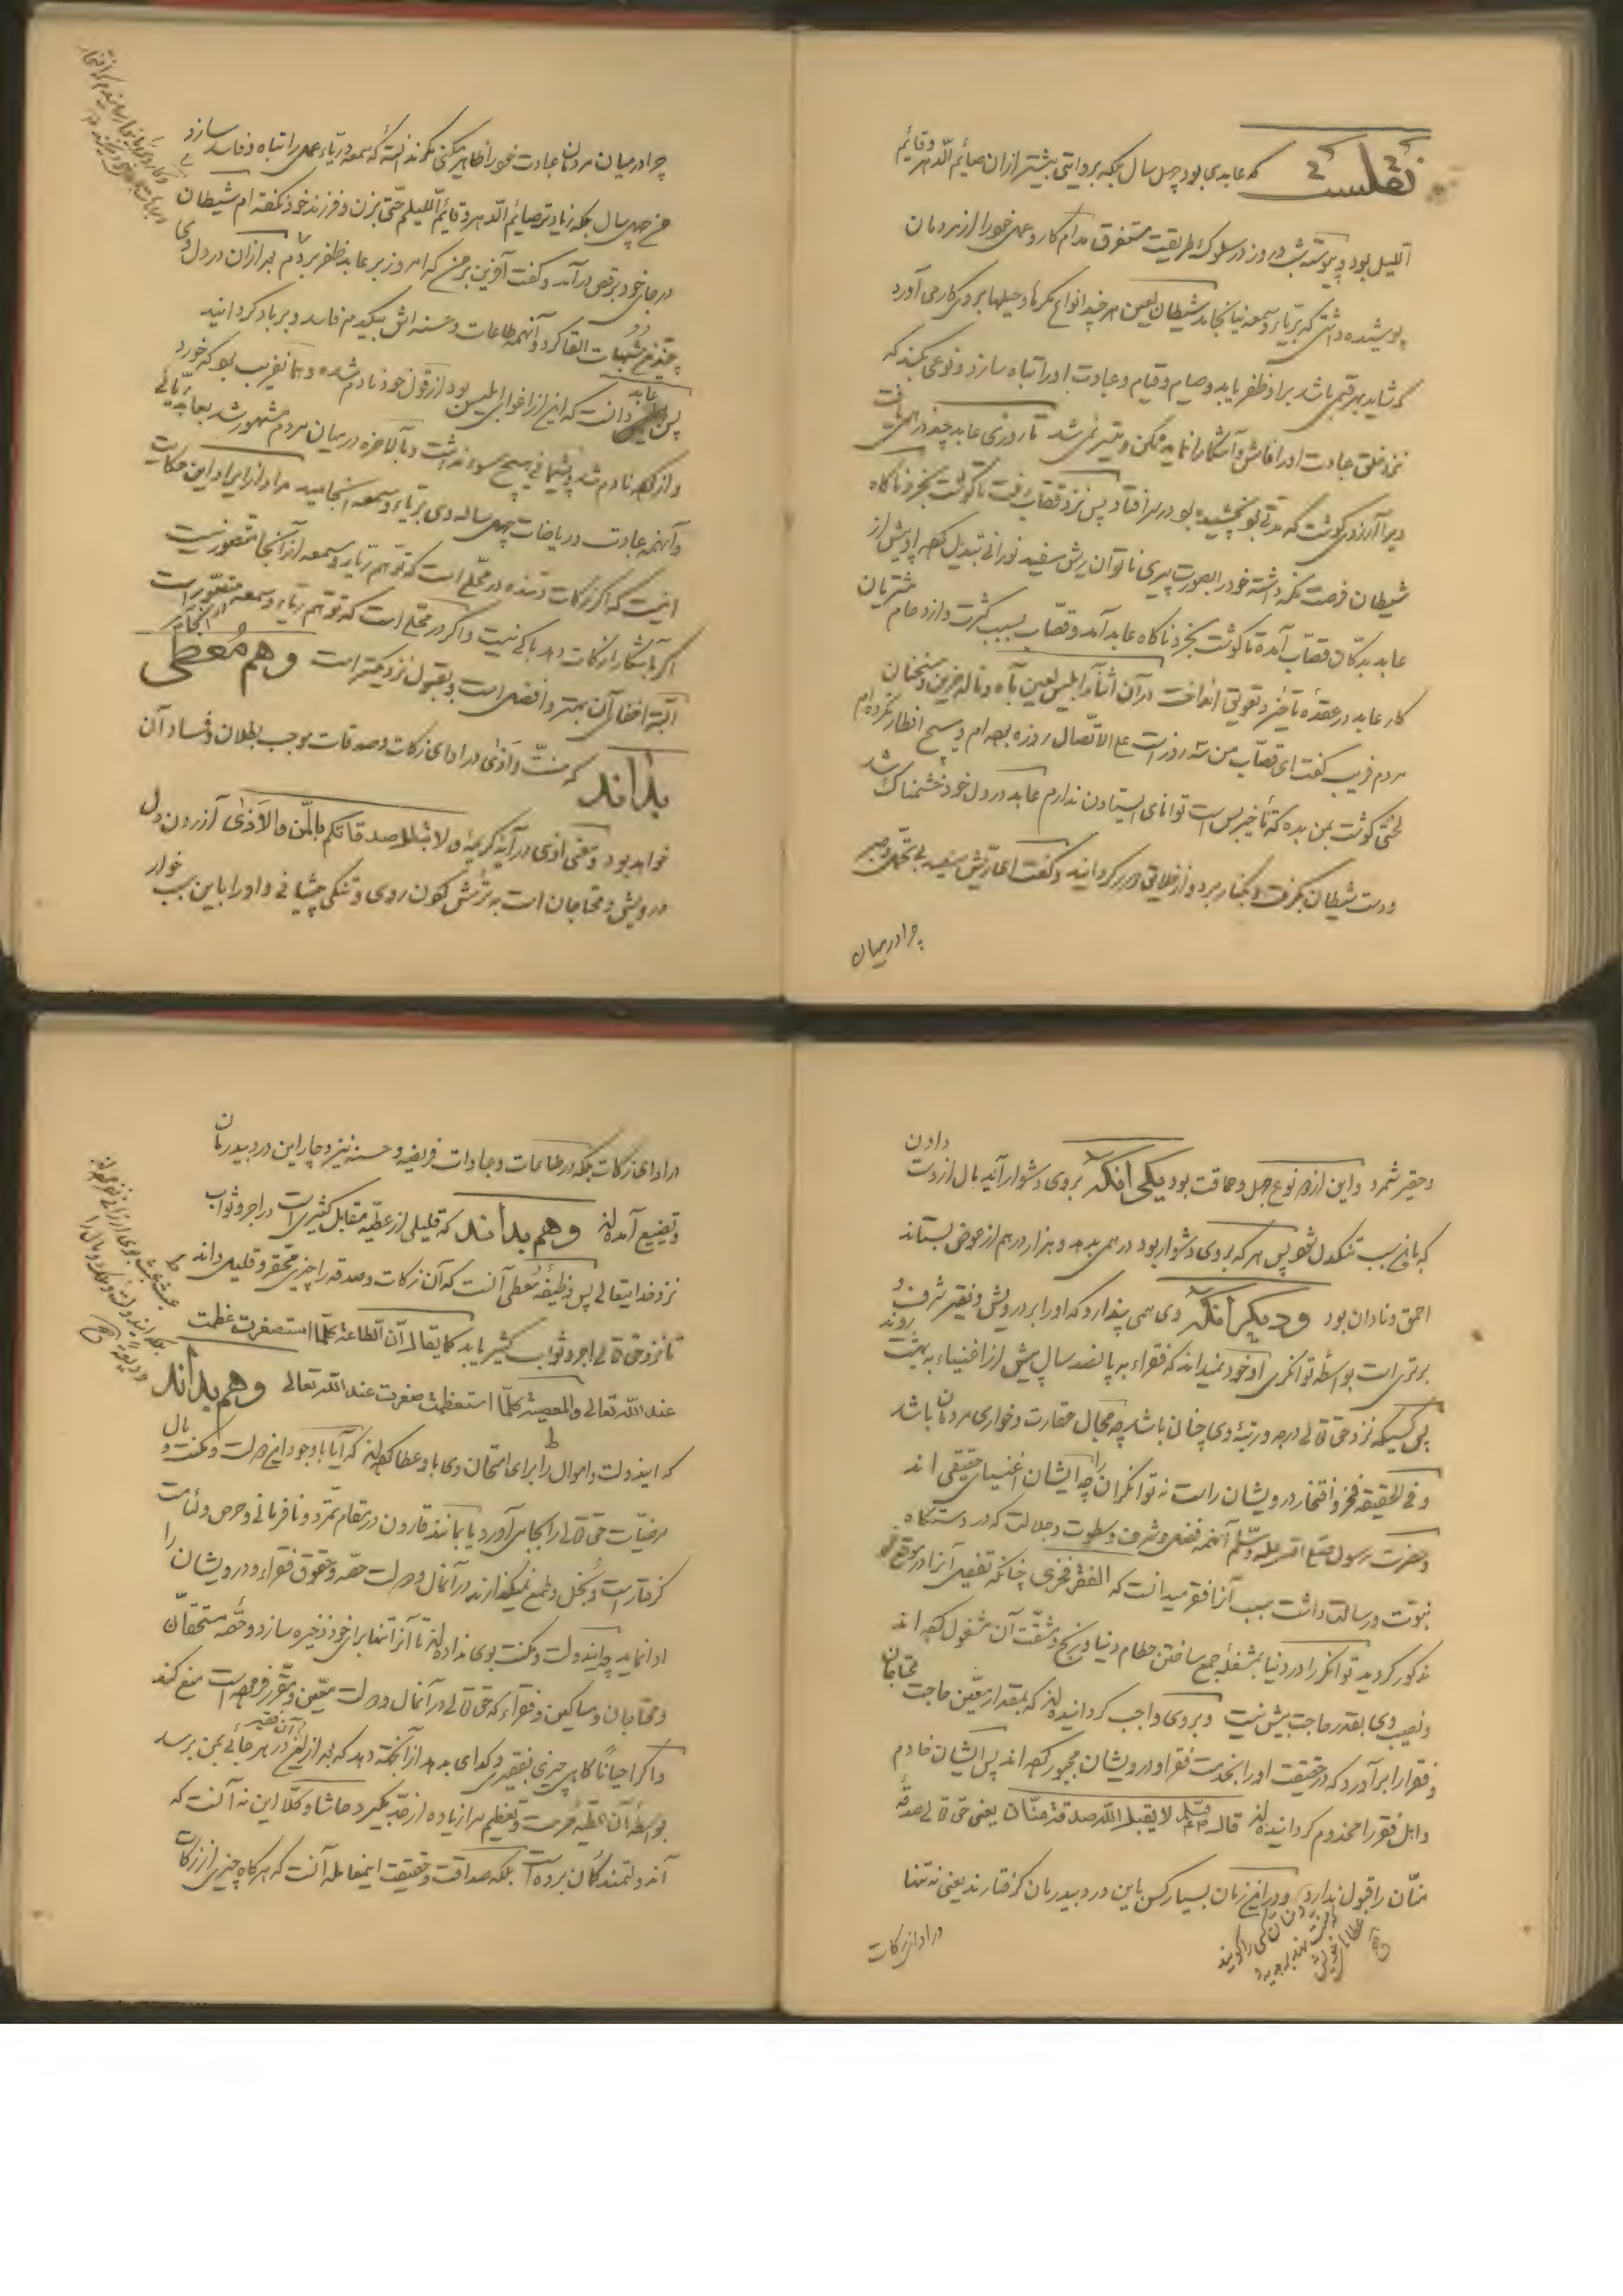 نقلست که عابدی بود چهل سال بلکه بروایتی بیشتر ازان صائم الدّهر وقائم
اللیل بود و پیوسته شب و روز در سلوک طریقت مستغرق مدام کار و عمل خود را از مردمان
پوشیده داشتی که بریا و سمعه نیانجامد شیطان لعین هر چند انواع مکرها و حیلها بروی کار می آورد
که شاید بهر قسمی باشد براو ظفر یابد و صیام و قیام و عبادت اورا تباه سازد و نوعی بکند که
نزد خلق عبادت اورا فاش و آشکارا نماید ممکن و میسّر نمی شد تا روزی عابد چند درهمی یافت
ویرا آرزوی گوشت که مدتی بو نچشیده بود در سر افتاد پس نزد قصّاب رفت تا گوشت بخرد ناگاه
شیطان فرصت نگه داشته خود را بصورت پیری ناتوان ریش سفید نورانی تبدیل کرده پیش از
عابد بدکان قصّاب آمده تا گوشت بخرد ناگاه عابد آمد و قصّاب بسبب کثرت و ازدحام مشتریان
کار عابد در عقدۀ تأخیر و تعویق انداخت در آن اثنا ابلیس لعین بآه و نالۀ حزین و سخنان
مردم فریب گفت ای قصّاب من سه روز است علی الاتّصال روزه بوده ام و هیچ افطار نکرده ام
لختی گوشت بمن بده که تأخیر بس است توانای ایستادن ندارم عابد در دل خود خشمناک شد
ودست شیطان بگرفت و بکنار برد و از خلایق دور گردانید و گفت ای ریش سفید بی تحمّل و صبر
چرا در میان
چرا در میان مردمان عبادت خود را ظاهر میکنی مگر ندانسته که سمعه و ریاء عمل را تباه و فاسد سازد
من چهل سال بلکه زیادتر صائم الدّهر و قائم اللیلم حتّی بزن و فرزند خود نگفته ام شیطان
در جای خود برقص درآمد و گفت آفرین بر من که امروز بر عابد ظفر بردم بعد ازان در دل وی
چندین شبهات القا کرد و آنهمه طاعات و حسنه اش بیکدم فاسد و بر باد گردانید
پس عابد دانست که این از اغوای ابلیس بود از قول خود نادم شده و بما نفریب بود که خورد
و از کرده نادم شد و پشیمانی هیچ سود نداشت و بالآخره در میان مردم مشهور شد بعابد ریائی
و آنهمه عبادت و ریاضات چهل ساله وی بریاء و سمعه انجامید مراد از ایراد این حکایت
اینست که اگر زکات دهنده در محلّی است که توهّم ریا و سمعه از آنجا متصوّر نیست
اگر باشکارا زکات دهد باکی نیست و اگر در محلّی است که توهّم ریاء و سمعه متصوّر است در انجا
البتّه اخفای آن بهتر و افضل است و بقبول نزدیکتر است وهم مُعطی
بداند که منّت و اذی در ادای زکات و صدقات موجب بطلان و فساد آن
خواهد بود و معنی اذی در آیۀ کریمۀ ولا تبطلوا صدقاتکم بالمنّ والاذی آزردن دل
درویش و محتاجان است به ترش کردن روی و تنگی پیشانی و او را باین سبب خوار
و حقیر شمرد و این از دو نوع جهل و حماقت بود یکی آنکه بروی دشوار آید مال از دست دادن
که باین سبب تنگدل شود پس هر که بروی دشوار بود درهمی بدهد و هزار درهم از عوض بستاند
احمق و نادان بود و دیگر آنکه وی همی پندارد که او را بر درویش و فقیر شرف و
برتری است بواسطۀ توانگری او خود نمیداند که فقراء به پانصد سال پیش از اغنیاء به بهشت روند
پس کسیکه نزد حق تعالی درجه و رتبۀ وی چنان باشد چه مجال حقارت و خواری مردمان باشد
و فی الحقیقه فخر و افتخار درویشان را است نه توانگران را چه ایشان اغنیای حقیقی اند
و حضرت رسول صلی الله علیه وسلّم آنهمه فضل و شرف و سطوت و جلالت که در دستگاه
نبوّت و رسالت داشت سبب آنرا فقر میدانست که الفقر فخری چنانکه تفصیل آنرا در موقع خود
مذکور گردید توانگر را در دنیا بمشغلۀ جمع ساختن حطام دنیا و رنج و مشقّت آن مشغول کرده اند
و نصیب وی بقدر حاجت بیش نیست و بروی واجب گردانیده اند که بمقدار معیّن حاجت محتاجان
و فقرا را برآورد که در حقیقت او را بخدمت فقرا و درویشان مجبور کرده اند پس ایشان خادم
و اهل فقر را مخدوم گردانیده اند قال صلعم لا یقبل الله صدقة منّان یعنی حق تعالی صدقۀ
منّان را قبول ندارد و در این زمان بسیار کس باین درد بیدرمان گرفتارند یعنی نه تنها
در ادای زکات
در ادای زکات بلکه در طاعات و عبادات فریضه و حسنه نیز دچار این درد بیدرمان
و تضییع آمده اند وهم بداند که قلیلی از عطیّه مقابل کثیر است در اجر و ثواب
نزد خدایتعالی پس وظیفۀ مُعطی آنست که آن زکات و صدقه را چیزی محقّر و قلیل داند
تا نزد حق تعالی اجر و ثواب کثیر یابد کما یقال انّ الطاعة کلّما استصغرت عظمت
عند الله تعالی والمعصیة کلّما استعظمت صغرت عند الله تعالی وهم بداند
که ایندولت و اموال را برای امتحان وی باو عطا کرده اند که آیا با وجود این دولت و مکنت و مال
مرضیّات حق تعالی را بجا می آورد یا بمانند قارون در مقام تمرّد و نافرمانی و حرص و لئامت
گرفتار است و بخل و طمع نمیگذارند در آنمال و دولت حصّه و حقوق فقراء و درویشان را
ادا نماید چه ایندولت و مکنت بوی نداده اند تا آنرا تنها برای خود ذخیره سازد و حقّه مستحقّان
و محتاجان و مساکین و فقراء که حق تعالی در آنمال و دولت معیّن و مقرّر فرموده است منع کند
و اگر احیاناً گاهی چیزی بفقیر و گدای بدهد از آنجهة دهد که بعد ازین آن فقیر در هر جائی بمن برسد
بواسطۀ آن عطیّه حرمت و تعظیم مرا زیاده از حد بگیرد حاشا و کلّا این نه آنست که
آن دولتمند گمان برده است بلکه صداقت و حقیقت اینمعامله آنست که هرگاه چیزی از زکات